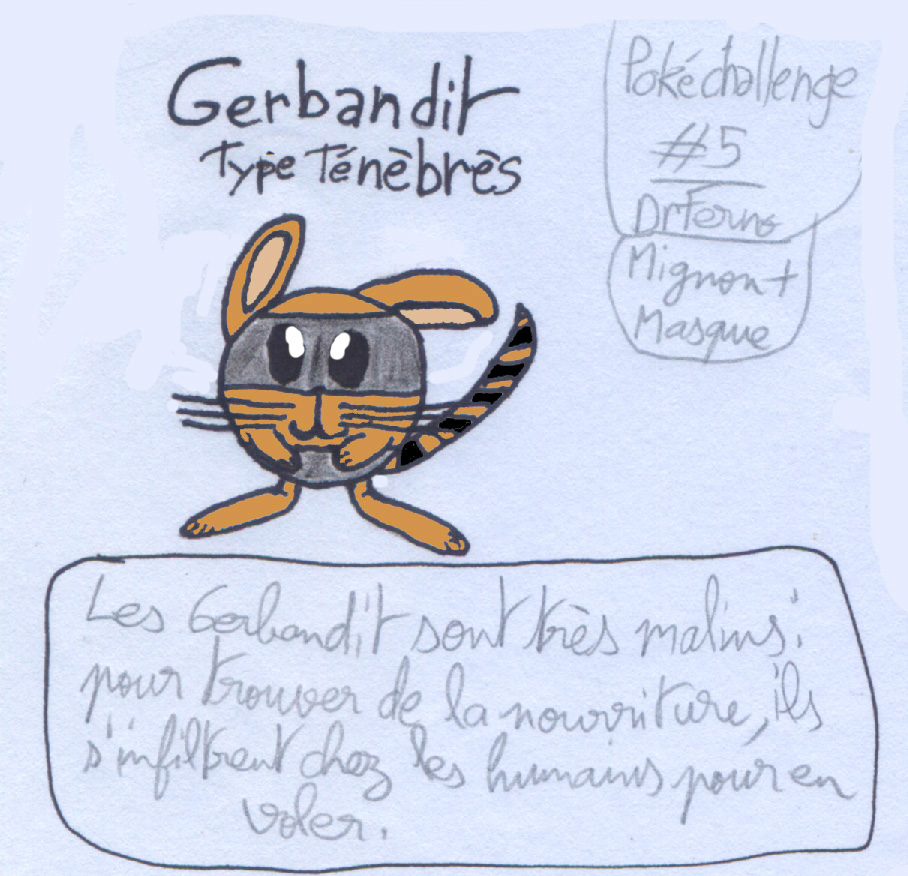 Gerbandit
Type Ténèbres
Pokéchallenge
#5
DrFerno
Mignon +
Masque
Les Gerbandit sont très malins :
pour trouver de la nourriture, ils
s'infiltrent chez les humains pour en
voler.